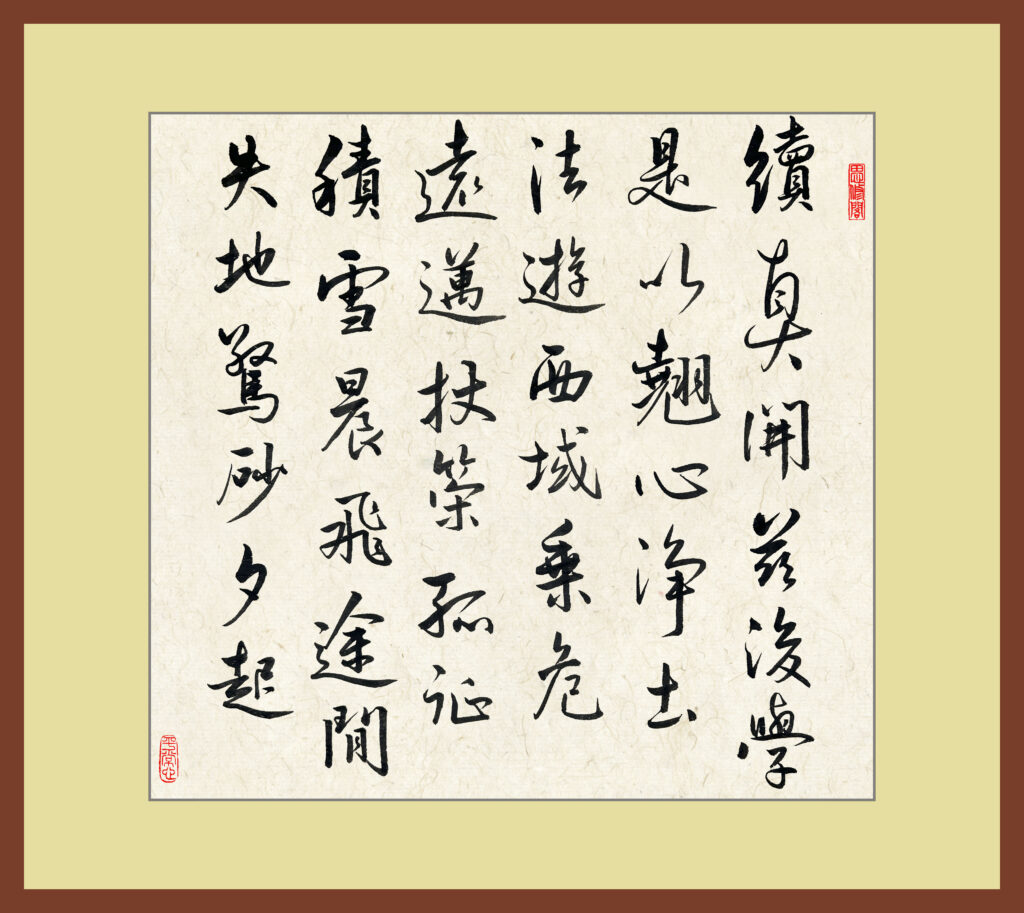 續真開茲後學
是以翹心浄土
法遊西域乗危
遠邁杖策孤征
積雪晨飛途間
失地驚砂夕起
平常心